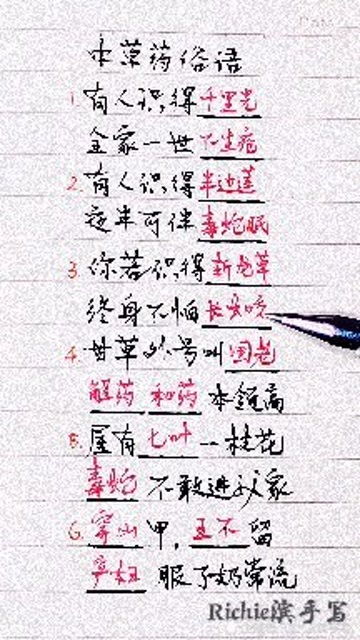 本草药俗语
1. 有人识得千里光
全家一世不生疮
2. 有人识得半边莲
夜半可伴毒蛇眠
3. 你若识得新龙草
终身不怕长虫咬
4. 甘草外号叫国老
解药 和药 本领高
5. 屋有七叶一枝花
毒蛇 不敢进家
6. 穿山甲,王不留
孕妇 服了奶常流
Richie滨手写